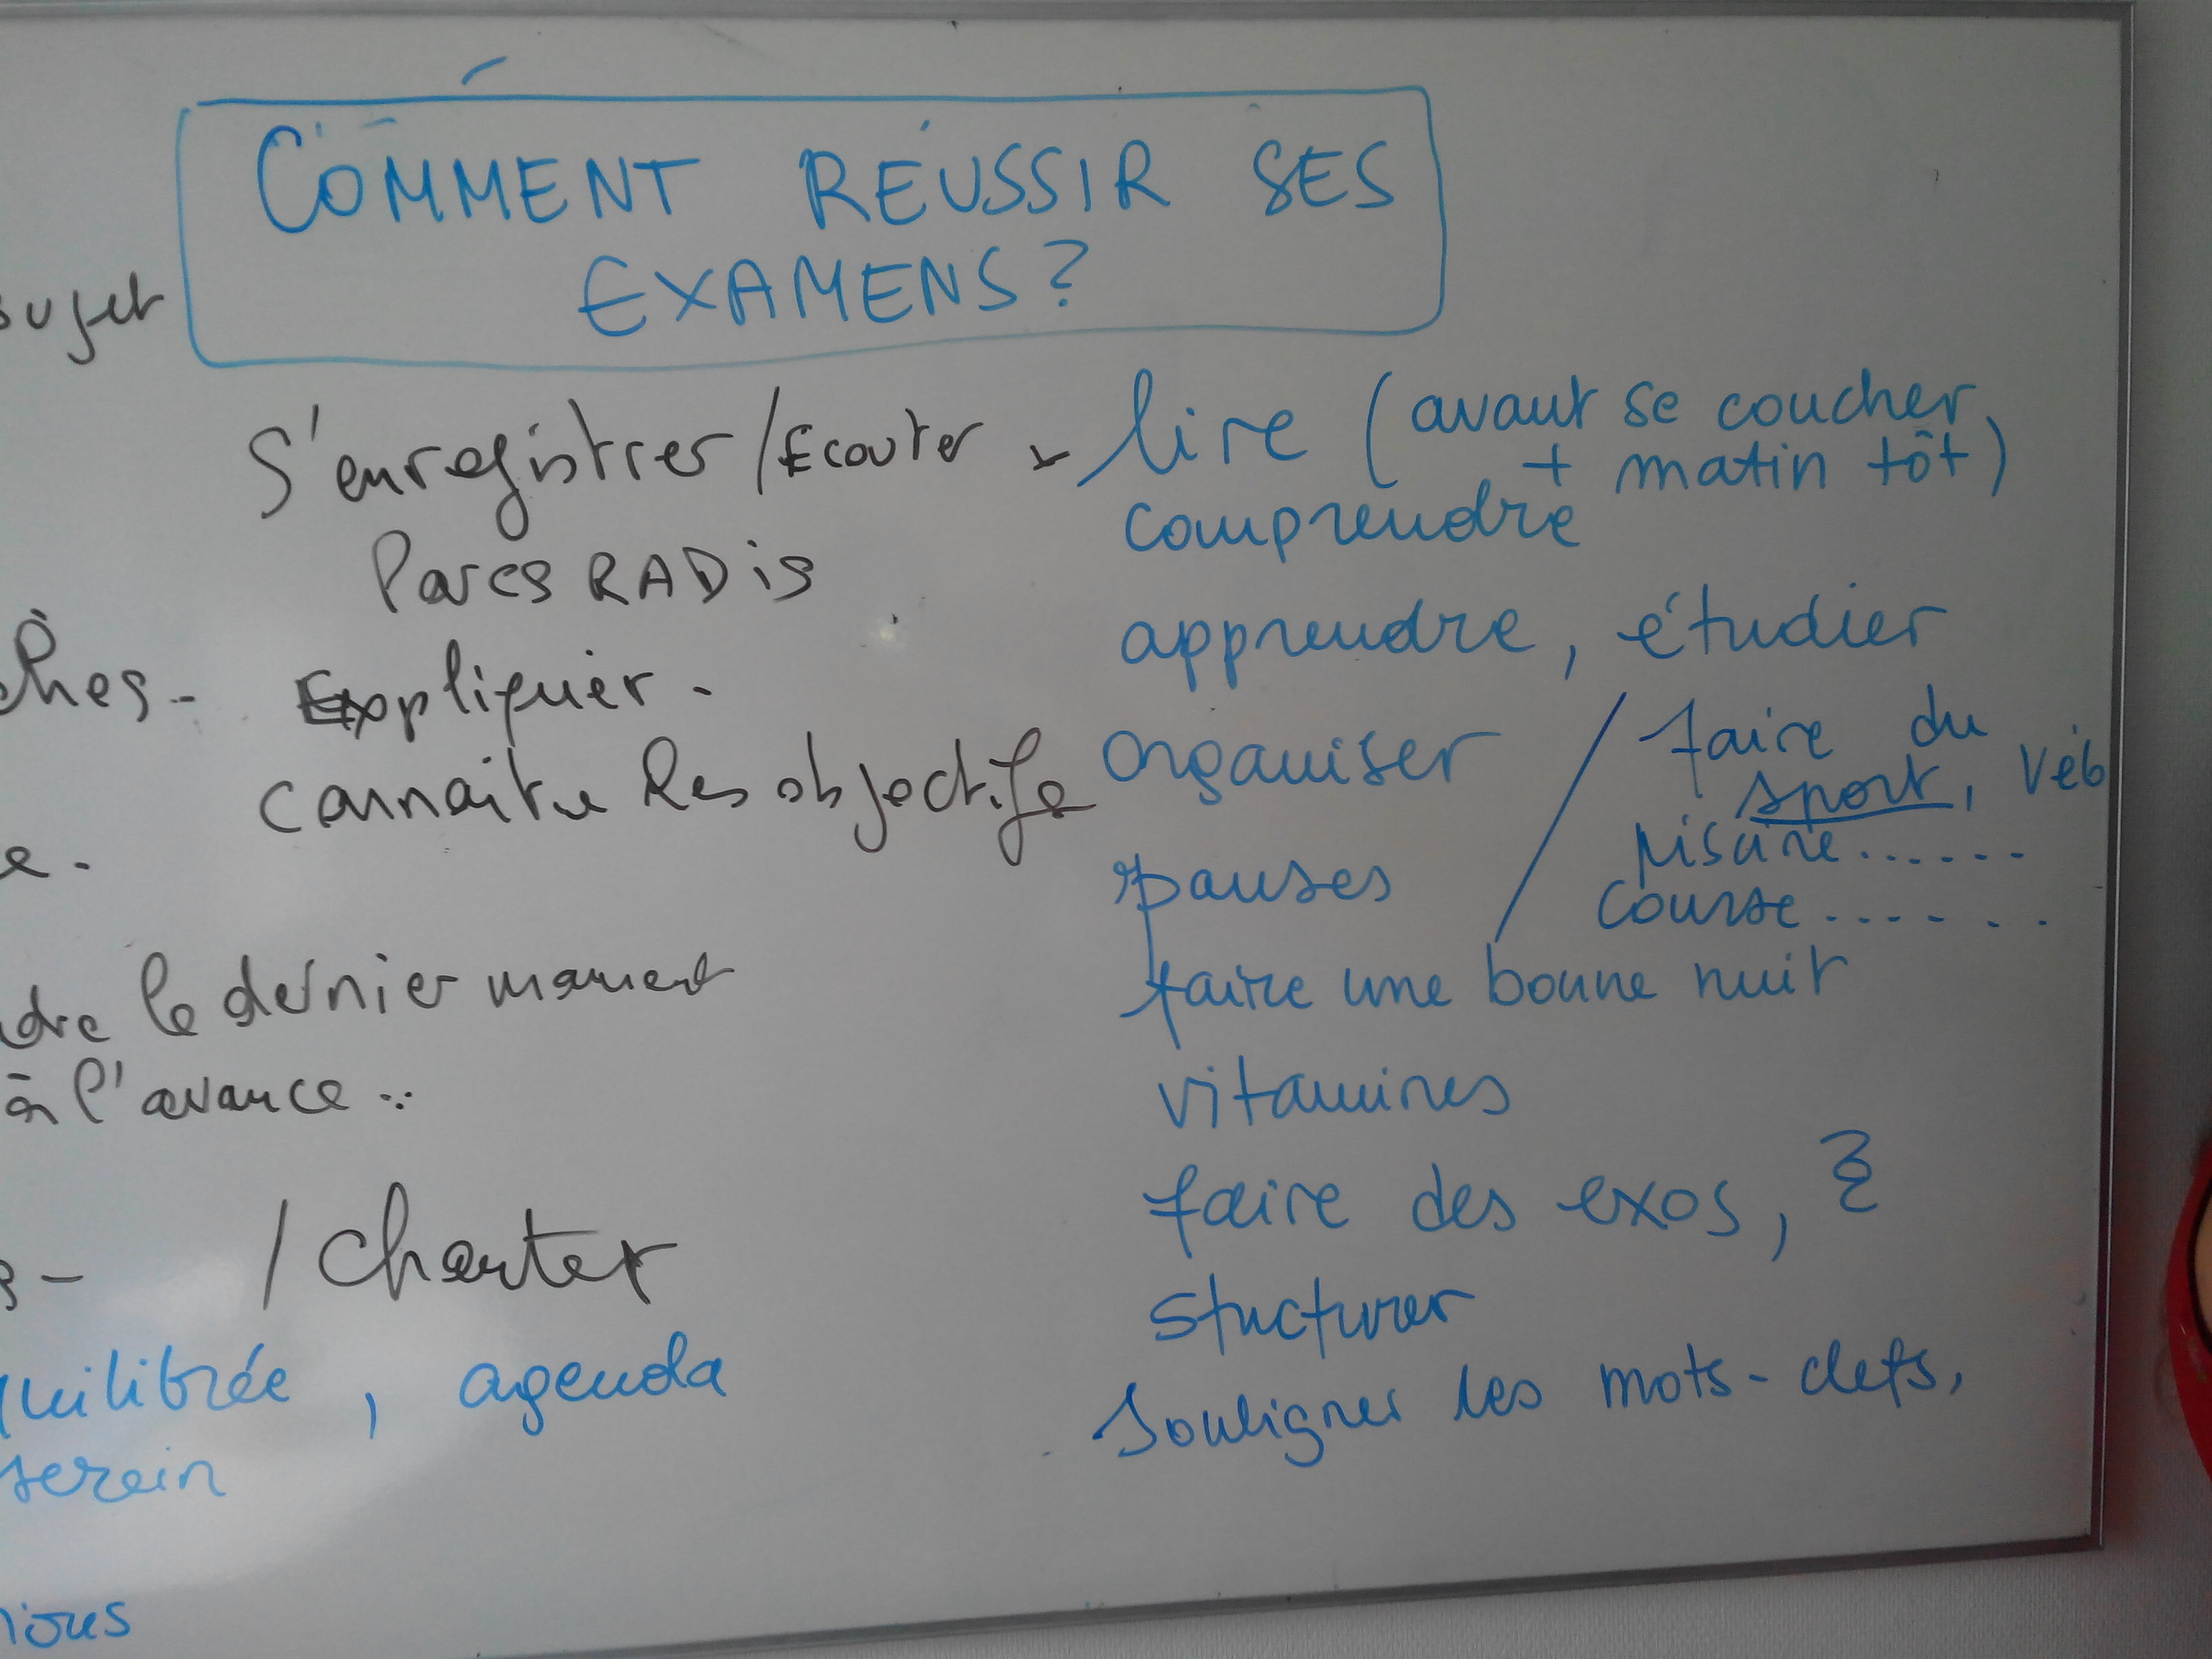 COMMENT RÉUSSIR SES
EXAMENS?
sujet
S'enregistrer/Ecouter
Parcs RADis
ches -
Expliquer -
connaitre les objectifs
e -
dre le dernier moment
à l'avance ..
s -
/ Chanter
quilibrée, agenda
serein
ious
lire (avant se coucher
+ matin tôt)
comprendre
apprendre, étudier
organiser
/ faire du
sport, véb
piscine......
course.......
pauses
faire une bonne nuit
vitamines
faire des exos,
stucturer
souligner les mots-clefs,